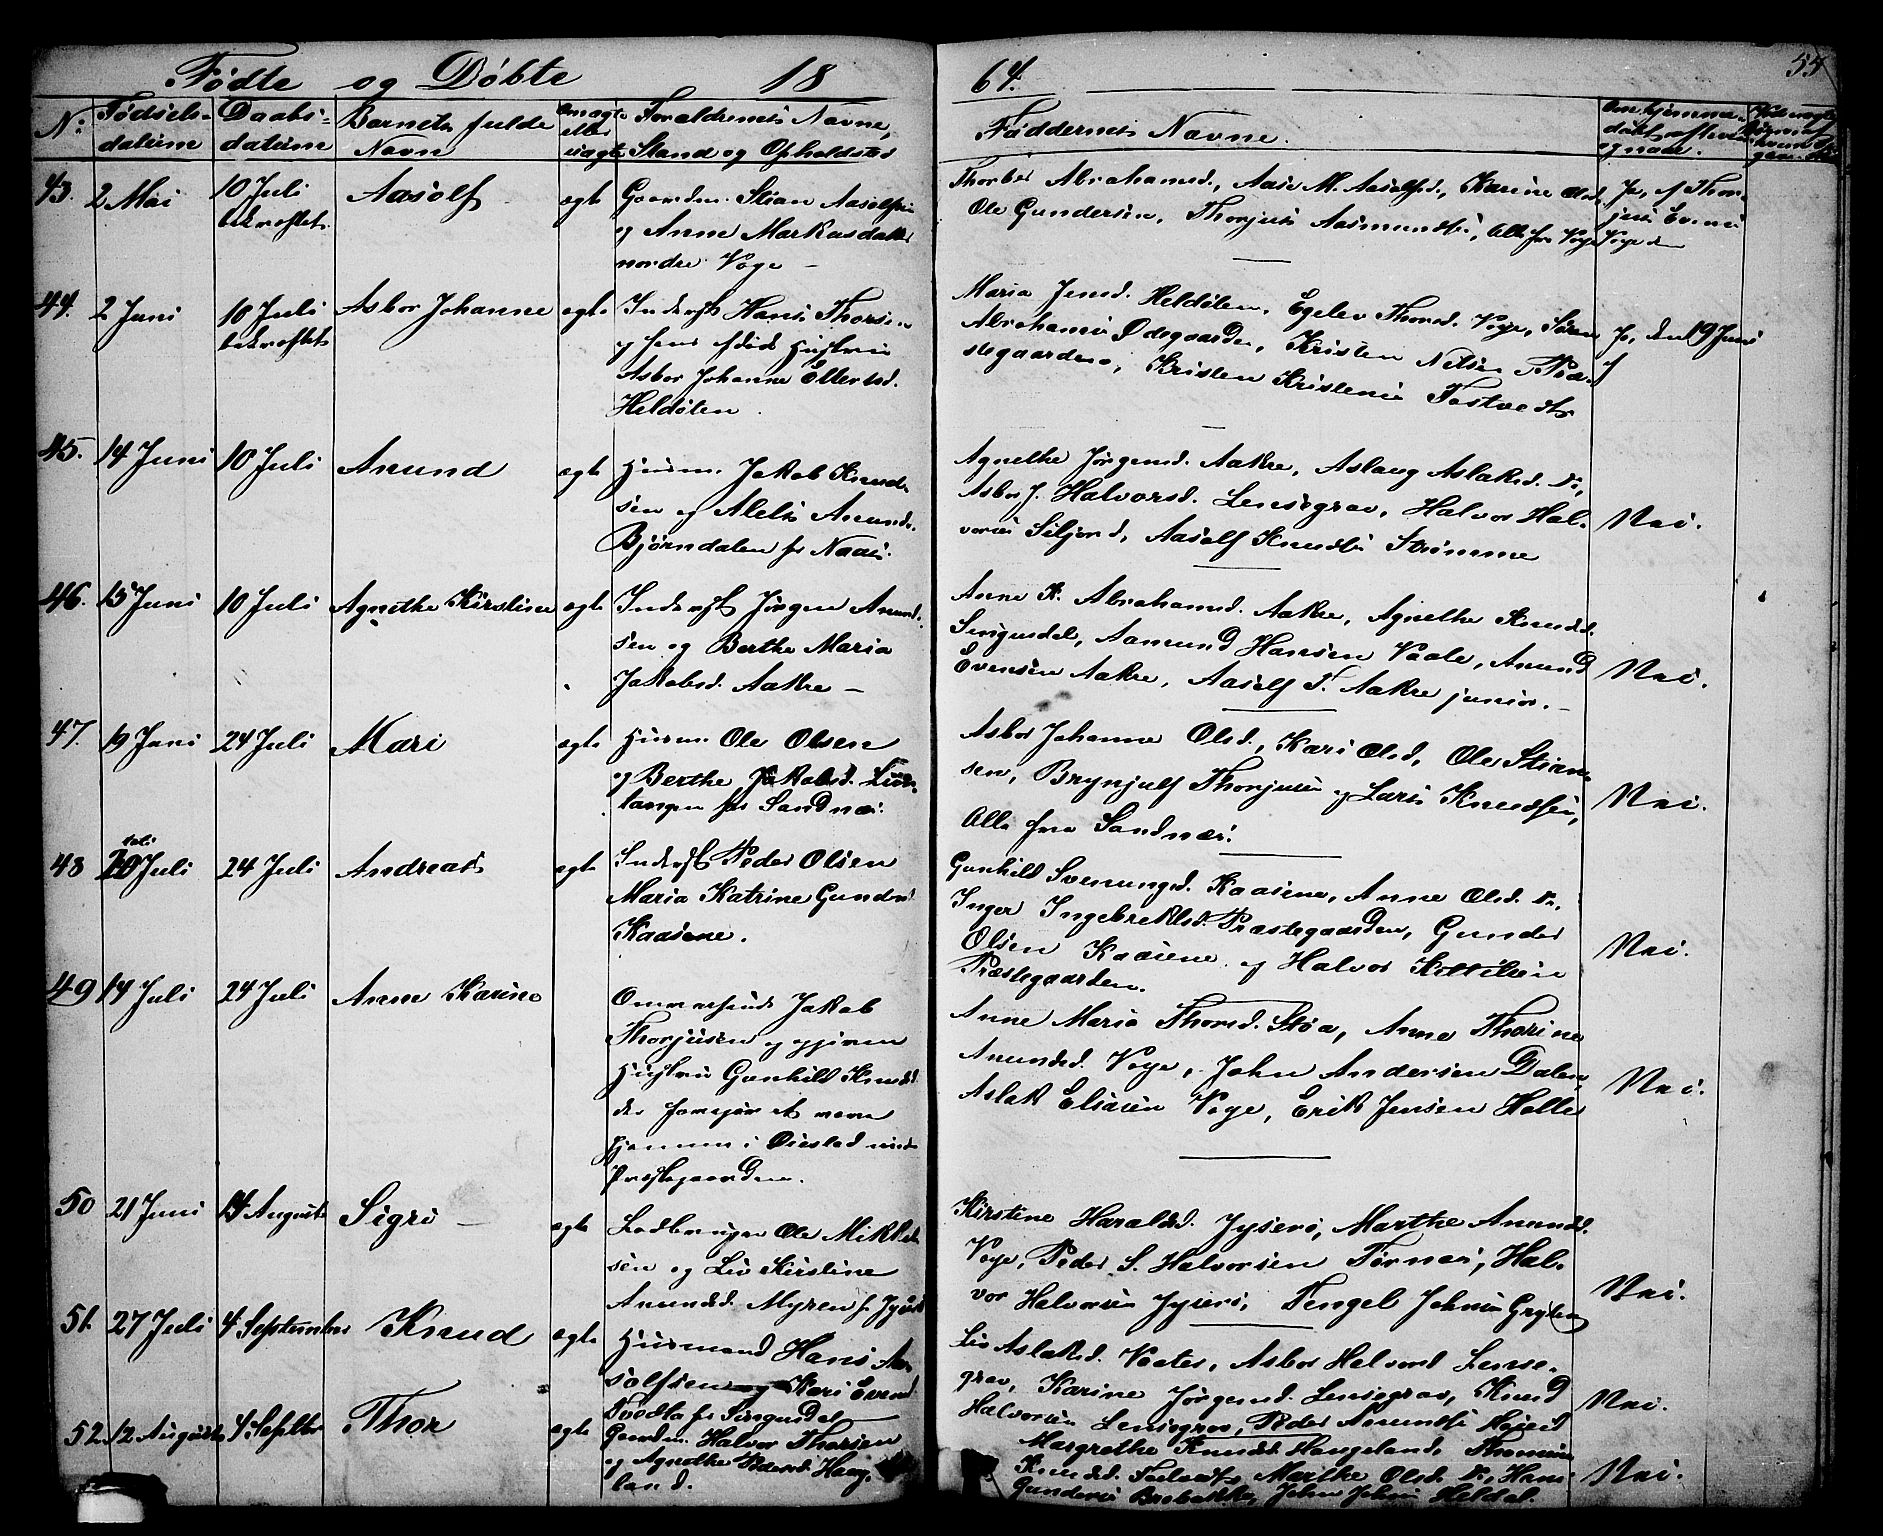 Fødte og Døbte 18
64.
55
No
Fødsels-
datum
Daabs-
datum
Barnets fulde
Navn
om ægte
eller
uægte
Foræeldrenes Navne,
Stand og Opholdsted
Faddernes Navne.
43. 2 Mai 10 Juli Aasolf ægte Gaardm. Stian Aasolfsen
bekræftet og Anne Markusdatter
nordre Vege –
Thorbør Abrahamsd., Aase M. Aasolfsd., Karine Olsd.
Ole Gundersen, Thorjus Aasmundsen, Alle fra Vege
Ja, af Thor-
jus Evens
Vege den
44. 2 Juni 10 Juli Asbør Johanne ægte Inderst Hans Thorsen
bekræftet og hans afdøde Hustru
Asbør Johanne Ellevsd.
Heldølen.
Maria Jensd. Heldølen, Egelev Thorsd. Vege, Søren
Abrahams Ødegaarden, Kristen Nilsen Præ-
stegaardene, Kristen Kristens Tostvedt
Ja, den 19 Juni
af
45. 14 Juni 10 Juli Anund ægte Husm. Jakob Knud-
sen og Aleth Anunds.
Bjørndalen fr Naas.
Agnethe Jørgensd. Aakre, Aslaug Aslaksd. Do,
Asbør J. Halvorsd. Lensegrav, Halvor Hal-
vorsen Siljord, Aasolf Knudsen Strømme
Nei.
46. 15 Juni 10 Juli Agnethe Kirstine ægte Inderst Jørgen Anund-
sen og Berthe Maria
Jakobsd. Aakre –
Anne K. Abrahamsd. Aakre, Agnethe Knudsd.
Singusdal, Aamund Hansen Vaale, Anund
Evensen Aakre, Aasolf T. Aakre junior. –
Nei.
47. 19 Juni 24 Juli Mari ægte Husm. Ole Olsen
og Berthe Jakobsd.
tangen fra Sandnæs.
Asbør Johanne Olsd., Kari Olsd, Ole Stian-
sen, Brynjulf Thorjusen og Lars Knudsen,
Alle fra Sandnæs.
Nei.
48 20 Juli 24 Juli Andreas ægte Inderst Peder Olsen
Maria Katrine Gunders
Kaasene.
Gunhild Svenungsd. Kaasene, Anne Olsd. Do.
Inger Ingebrektsd. Præstegaarden, Gunder
Olsen Kaasene og Halvor Kittilsen
Præstegaarden.
Nei.
49 14 Juli 24 Juli Anne Karine
Omreisende Jakob
Thorjusen og egjiven
Hustru Gunhild Knudsd.
der foregiver at være
hjemme i Øiestad under
Præstegaarden.
Anne Maria Thorsd. Støa, Anne Thorine
Anundsd. Vege, John Andersen Dalen,
Aslak Eliasen Vege, Erik Jensen Holte
Nei.
50 21 Juni 14 August Sigri – ægte Ladbruger Ole Mikkel-
sen og Liv Kirstine
Anundsd. Myren fr Jyserø
Kirstine Haraldsd. Jyserø, Marthe Anundsd.
Vege, Peder S. Halvorsen Tørnes, Hal-
vor Halvorsen Jyserø, Tengel Johnsen Gryten
Nei.
51. 27 Juli 4 September Knud ægte Husmand Hans Aa-
solfsen og Kari Evensd.
Tvedta fr Singusdal
Liv Aslaksd. Vaates, Asbør Halvorsd Lense-
grav, Karine Jørgensd. Lensegrav, Knud
Halvorsen Lensegrav, Peder Amundsen Høised
Nei.
52. 12 August 4 Septbr Thor ægte Gaardm. Halvor Thorsen
og Agnethe Pedersd. Hauge-
land.
Margrethe Knudsd. Haugeland, Thomine
Knudsd. , Marthe Olsd. Do, Hans
Gundersen Brobakke, John Johns Heldal.
Nei.